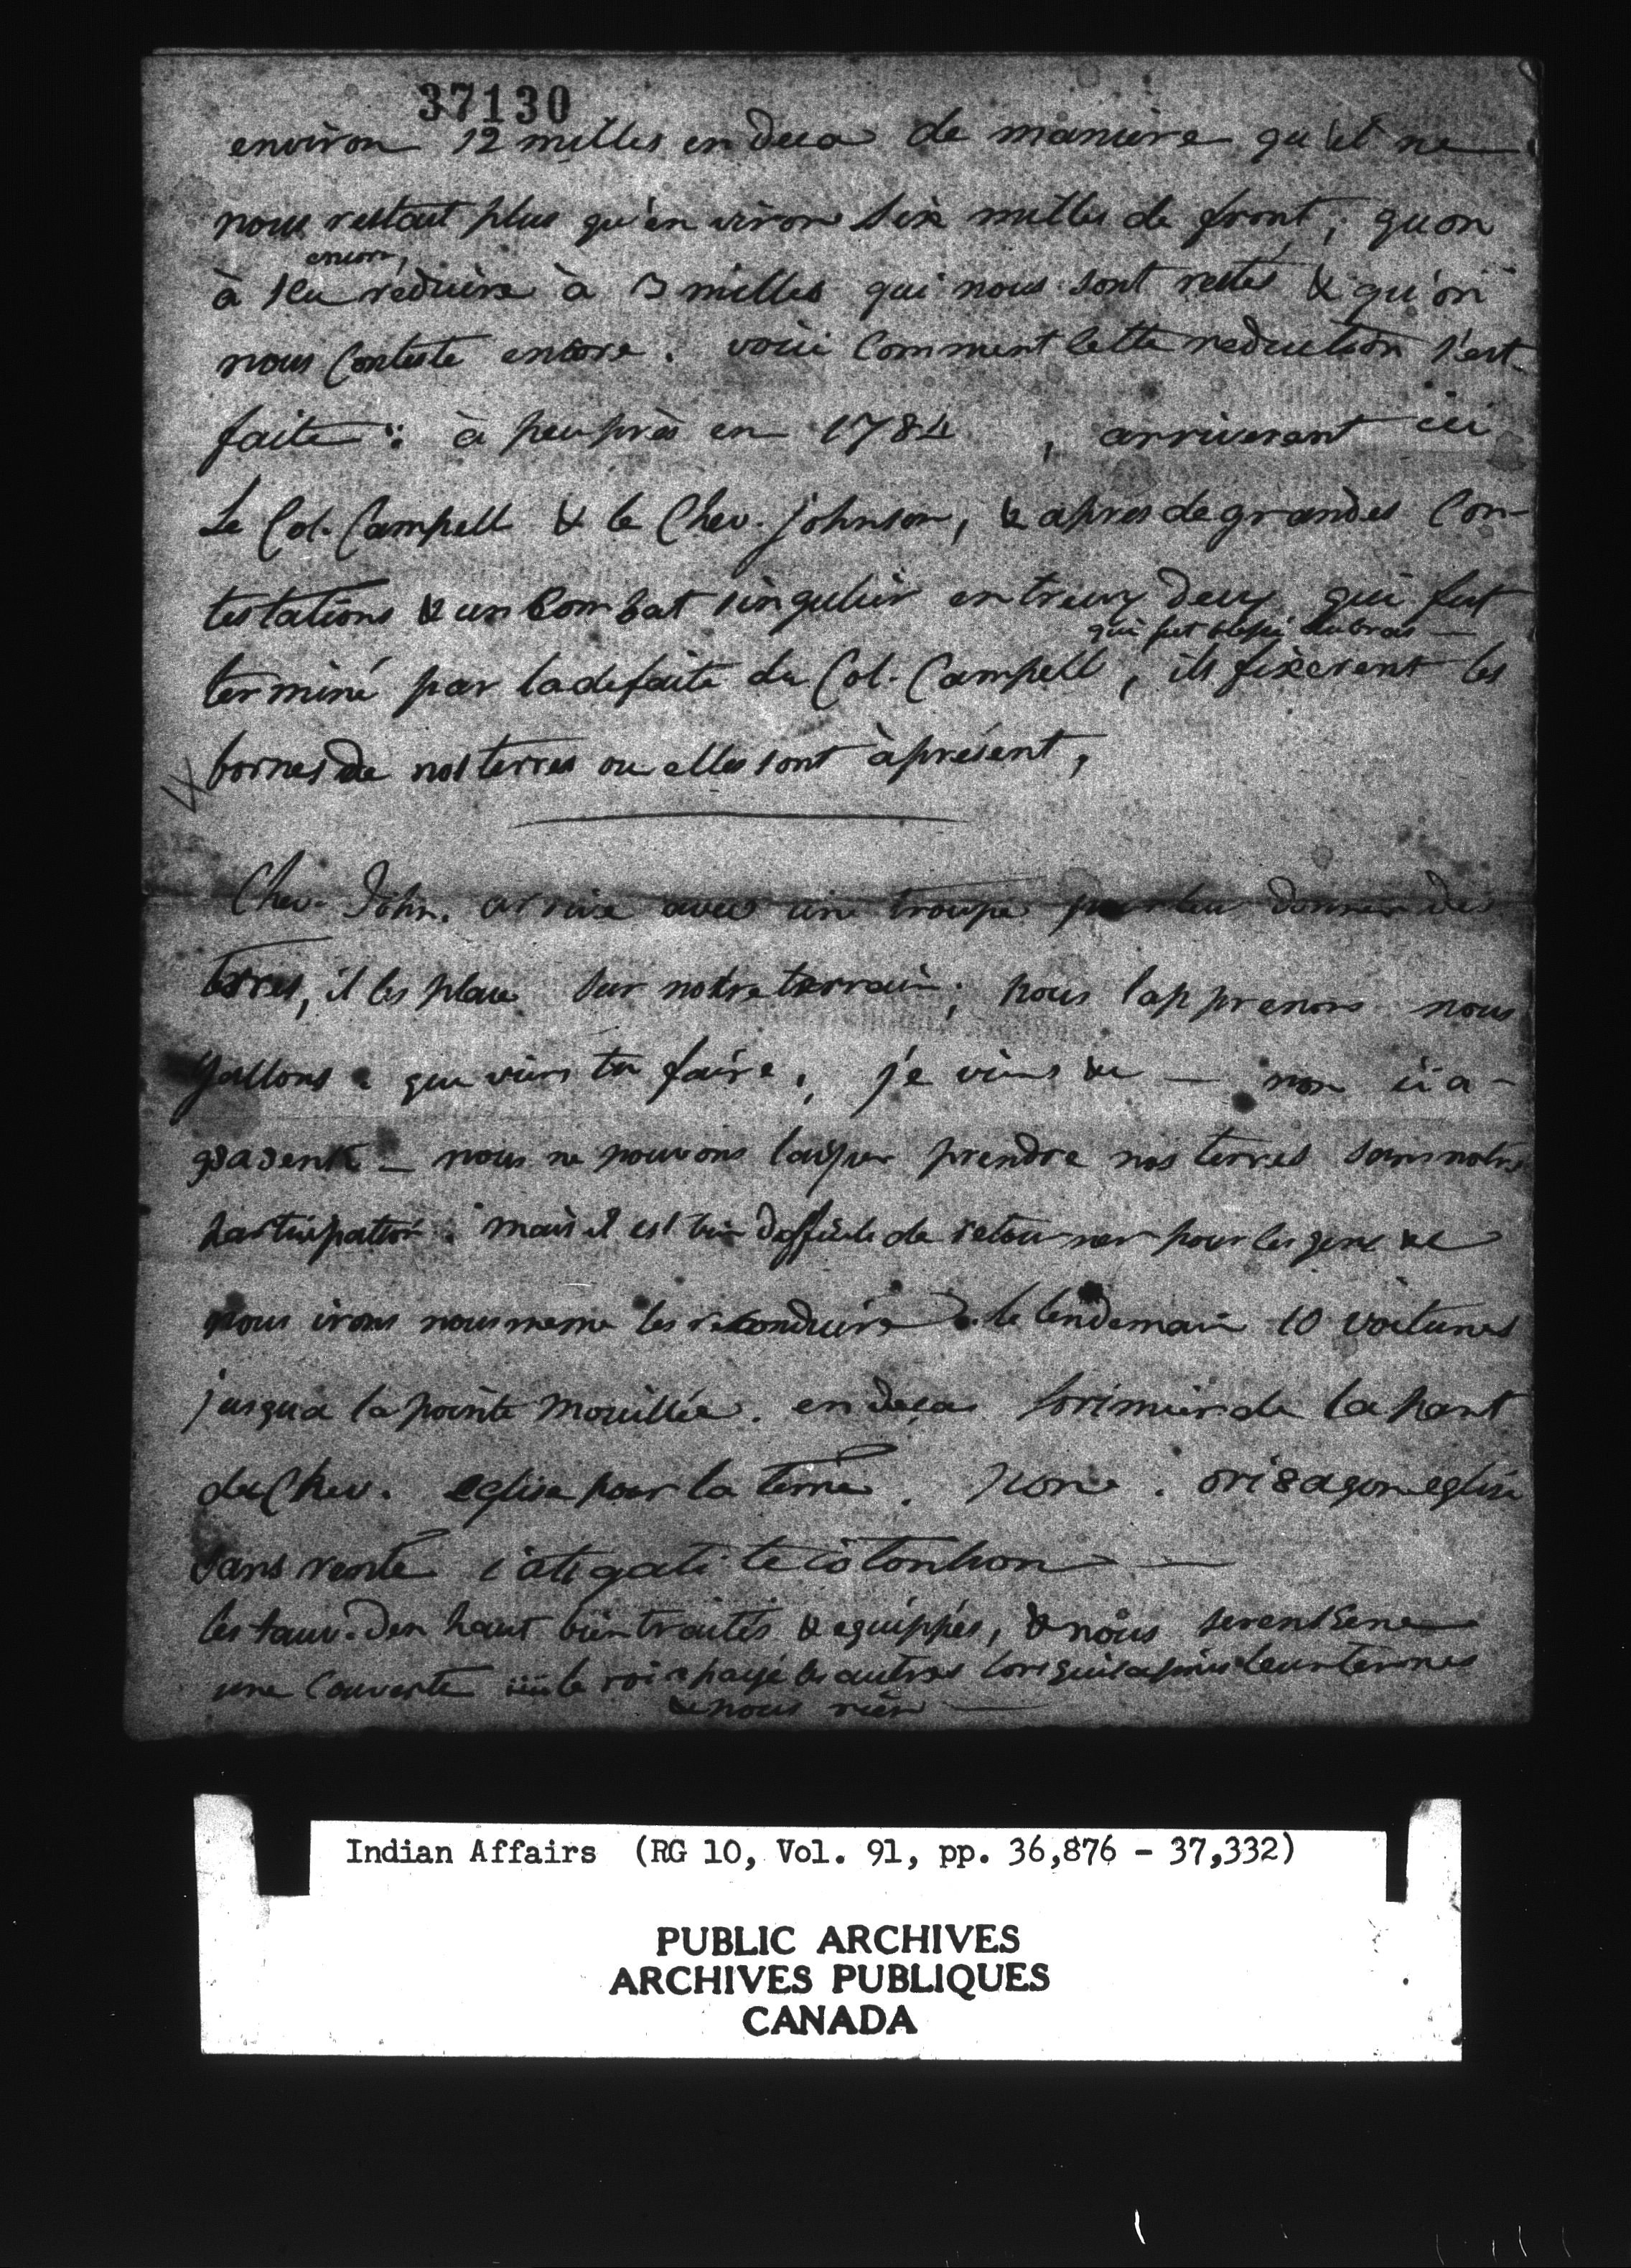 37130
environ 12 milles en deca de maniere qu'il ne
nous restait plus qu'environ six milles de front; qu'on
encore,
à sçu reduire à 3 milles qui nous sont restés & qu'on
nous Conteste encore. voici Comment Cette reduction s'est
faite: à peuprès en 1784 , arriverent ici
Le Col. Campell & le Chev. johnson, & après de grandes Con-
testations & un Combat singulier entreux deux qui fut
qui fut blessé au bras —
terminé par la defaite du Col. Campell, ils fixerent les
bornes de nos terres ou elles sont àprésent,
Chev. John. arrive avec une troupe pour leu donner des
terres, il les place sur notre terrain; nous l'apprenons nous
y allons que viens tu faire, je viens &c — non
nous ne pouvons laisser prendre nos terres sans notre
participation. mais il est bien difficile de retourner pour les gens &c
nous irons nous meme les reconduire le lendemain 10 voitures
jusqua la pointe Mouillée. en deça lorimier de la part
du Chev. eglise pour la terre. eglise
sans rente
les sauv. den haut bien traités & equippés, & nous
une Couverte le roi a payé les autres lorsquil a pris leur terres
& nous rien —
Indian Affairs (RG 10, Vol. 91, pp. 36,876 - 37,332)
PUBLIC ARCHIVES
ARCHIVES PUBLIQUES
CANADA